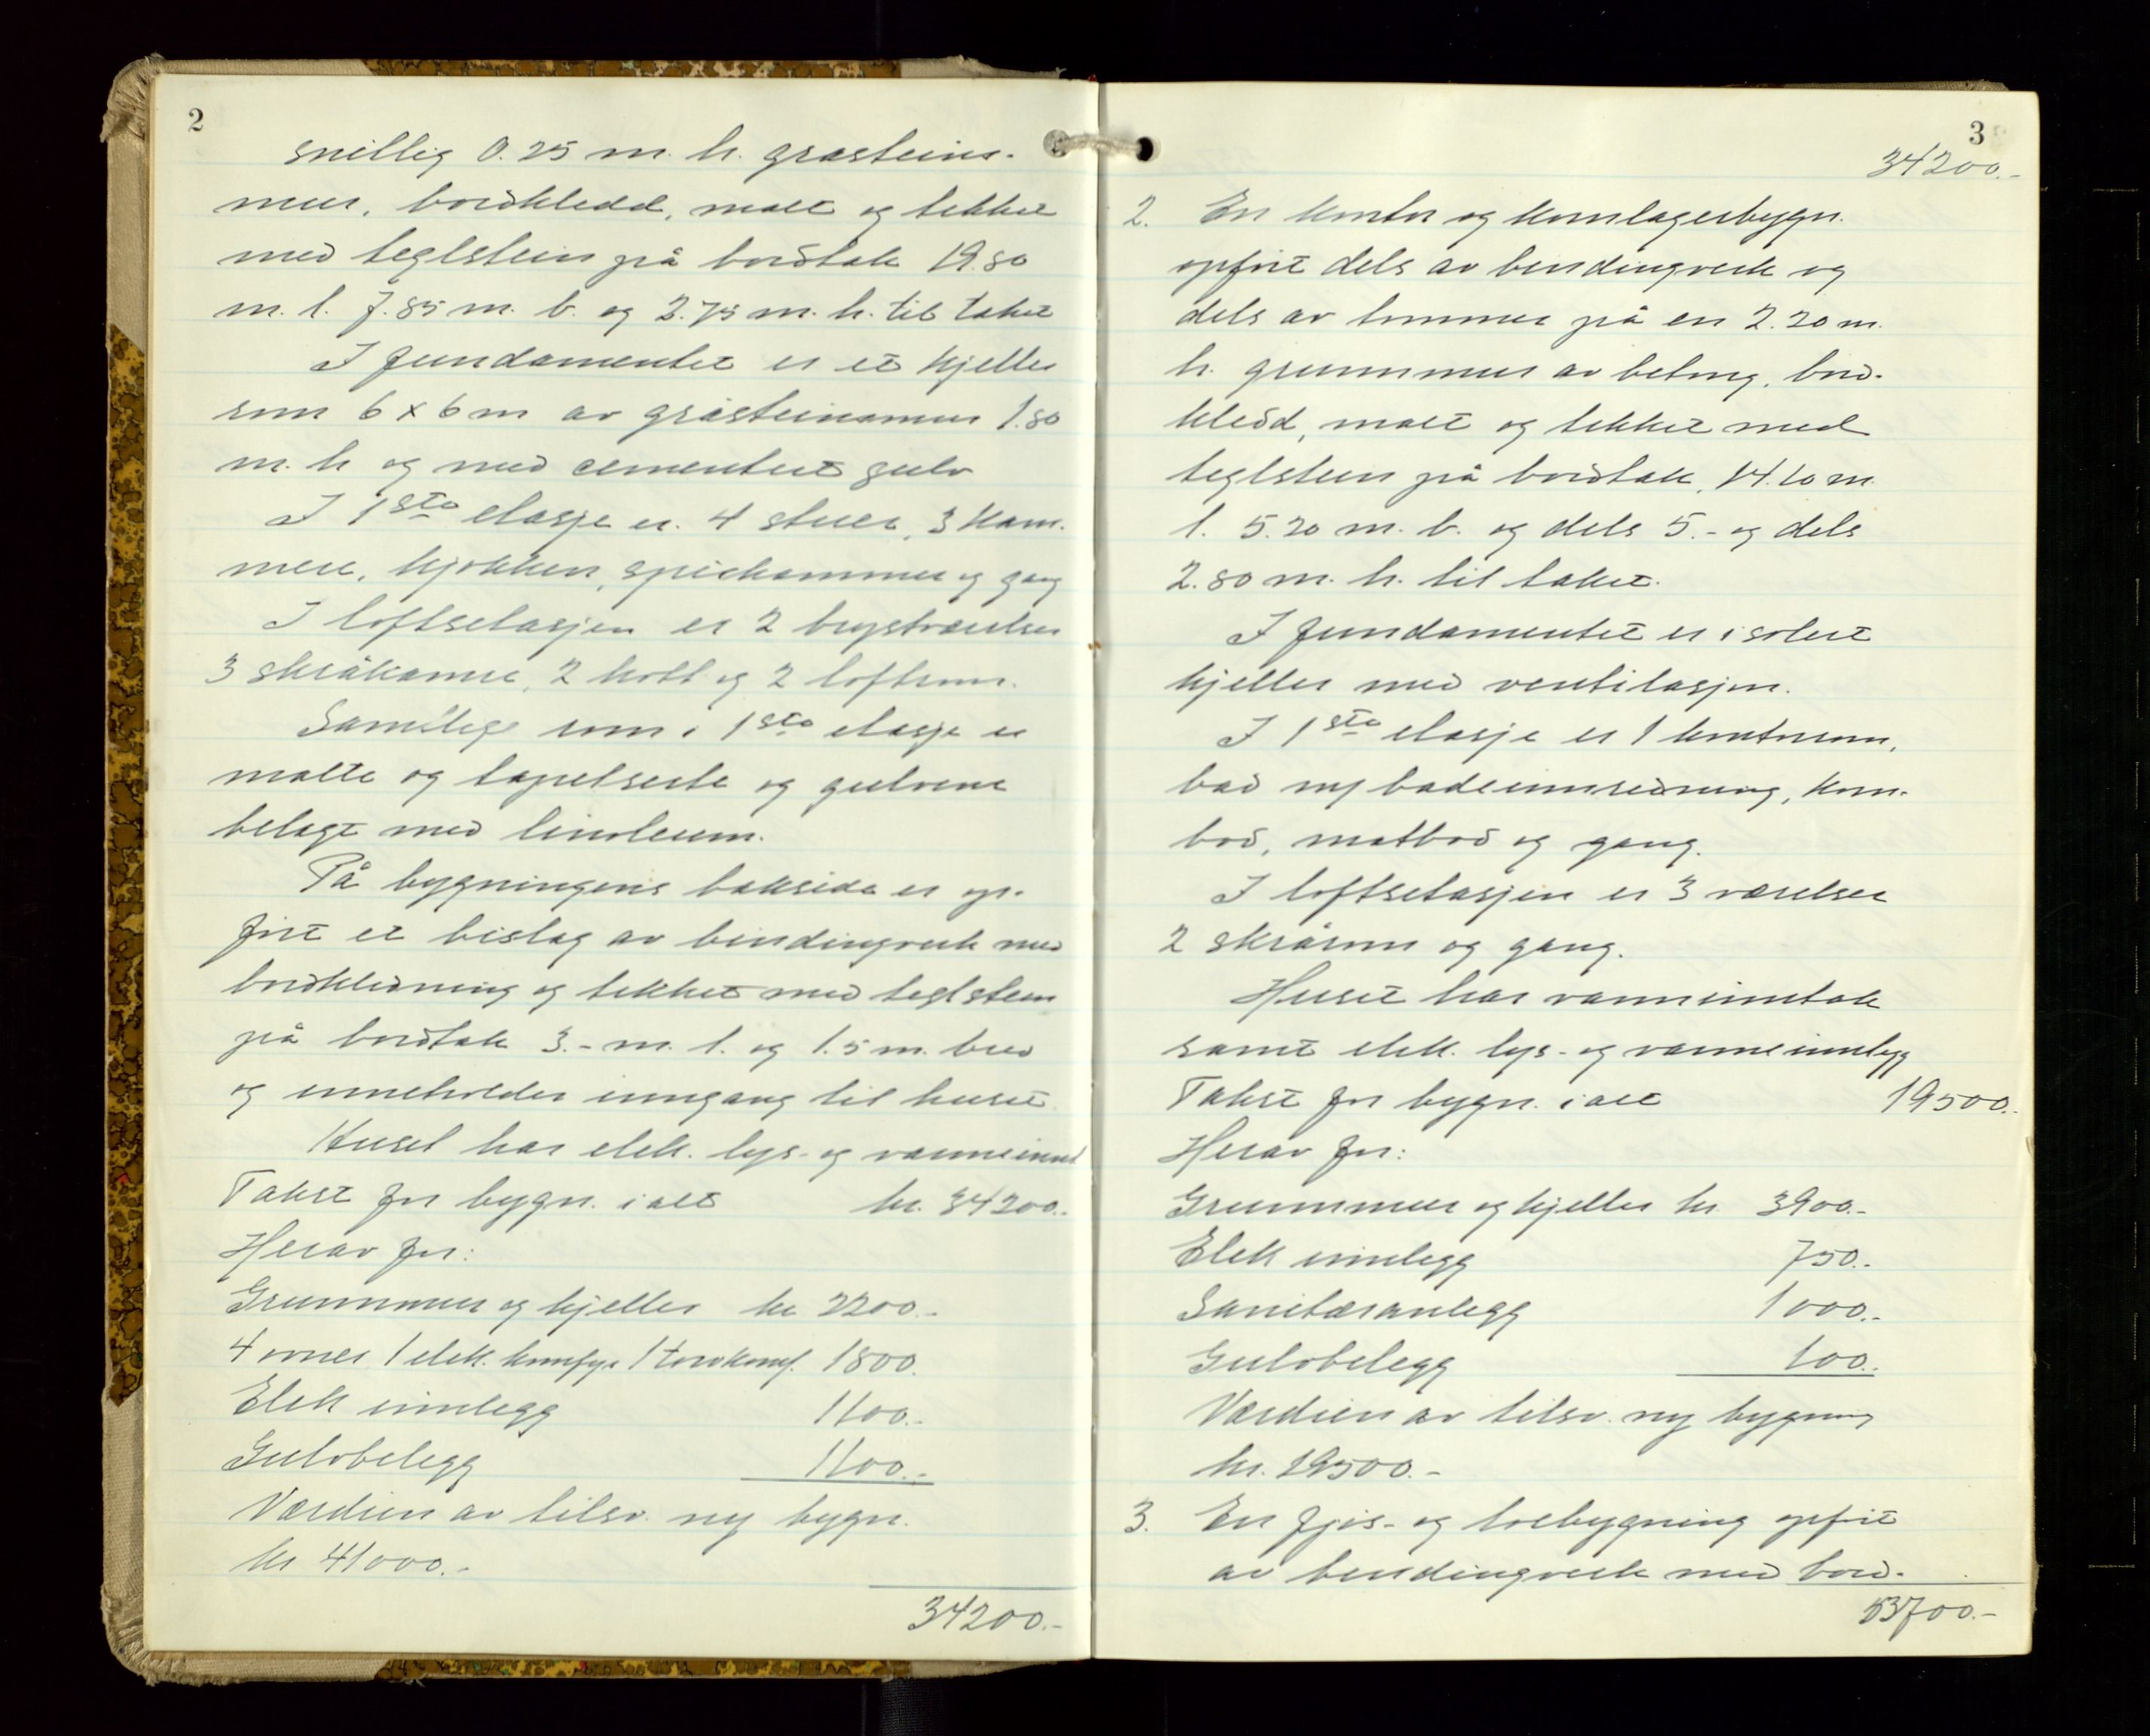 2
snittlig 0.25 m. h. gråsteins-
mur, bordkledd, malt og tekket
med teglstein på bordtak 19.80
m. l. 7.85 m. b. og 2.75 m. h. til taket
I fundamentet er et kjeller
rom 6 x 6 m av gråsteinsmur 1.80
m. h og med cementert gulv
I 1ste etasje er 4 stuer, 3 kam-
mere, kjøkken, spiskammer og gang
I loftsetasjen er 2 brystværelser
3 skråkamre, 2 kott og 2 loftrom.
Samtlige rom i 1ste etasje er
malte og tapetserte og gulvene
belagt med linoleum.
På bygningens bakside er op-
ført et bislag av bindingverk med
bordkledning og tekket med teglstein
på bordtak 3.- m. l. og 1.5 m. bred
og inneholder inngang til huset
Huset har elek. lys- og varmeinnl
Takst for bygn. i alt kr. 34200.-
Herav for:
Grunnmur og kjeller kr 2200.-
4 ovner 1 elek. komfyr 1 torvkomf. 1800.
Elek innlegg 1100.-
Gulvbelegg 1100.-
Værdien av tilsv. ny bygn.
kr 41000.-
34200.-
3
34200.-
2. En kontor og kornlagerbygn.
opført dels av bindingverk og
dels av tømmer på en 2.20 m.
h. grunnmur av betong, bord-
kledd, malt og tekket med
teglstein på bordtak, 14.10 m
l. 5.20 m. b. og dels 5.- og dels
2.80 m. h. til taket.
I fundamentet er isolert
kjeller med ventilasjon.
I 1ste etasje er 1 kontorrom,
bad m/ badeinnredning, korn-
bod, matbod og gang.
I loftsetasjen er 3 værelser
2 skrårom og gang.
Huset har vanninntak
samt elek. lys- og varmeinnlegg
Takst for bygn. i alt 19500.-
Herav for:
Grunnmur og kjeller kr. 3900.-
Elek innlegg 750.-
Sanitæranlegg 1000.-
Gulvbelegg 100.-
Værdien av tilsv. ny bygning
kr. 19500.-
3. En fjøs- og løebygning opført
av bindingverk med bord-
53700.-